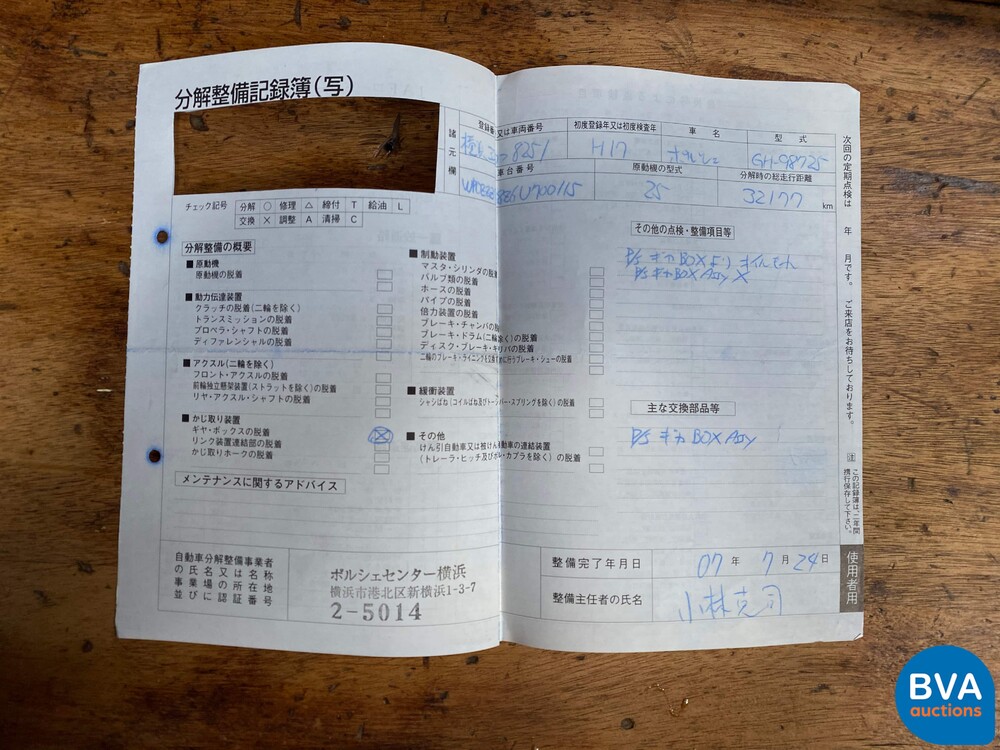 分解整備記録簿(写)
諸元欄
登録番号又は車両番号
初度登録年又は初度検査年
車名
型式
8251
H17
ポルシェ
GH-98725
車台番号
原動機の型式
分解時の総走行距離
25
32177 km
チェック記号
分解 ○ 修理 △ 締付 T 給油 L
交換 × 調整 A 清掃 C
分解整備の概要
■ 原動機
原動機の脱着
■ 動力伝達装置
クラッチの脱着(二輪を除く)
トランスミッションの脱着
プロペラ・シャフトの脱着
ディファレンシャルの脱着
■ アクスル(二輪を除く)
フロント・アクスルの脱着
前輪独立懸架装置(ストラットを除く)の脱着
リヤ・アクスル・シャフトの脱着
■ かじ取り装置
ギヤ・ボックスの脱着
リンク装置連結部の脱着
かじ取りホークの脱着
■ 制動装置
マスタ・シリンダの脱着
バルブ類の脱着
ホースの脱着
パイプの脱着
倍力装置の脱着
ブレーキ・チャンバの脱着
ブレーキ・ドラム(二輪を除く)の脱着
ディスク・ブレーキ・キャリパの脱着
■ 緩衝装置
シャシばね(コイルばね及びトーションバー・スプリングを除く)の脱着
■ その他
けん引自動車又は被けん引自動車の連結装置
(トレーラ・ヒッチ及びボール・カプラを除く)の脱着
メンテナンスに関するアドバイス
自動車分解整備事業者
の氏名又は名称
事業場の所在地
並びに認証番号
ポルシェセンター横浜
横浜市港北区新横浜1-3-7
2-5014
その他の点検・整備項目等
P/S ギカ BOX より オイルモレ
P/S ギカ BOX Assy ×
主な交換部品等
P/S ギカ BOX Assy
整備完了年月日
07 年 7 月 24 日
整備主任者の氏名
小林克司
次回の定期点検は 年 月です。ご来店をお待ちしております。
注 この記録簿は、二年間
携行保存して下さい。
使用者用
BVA
auctions